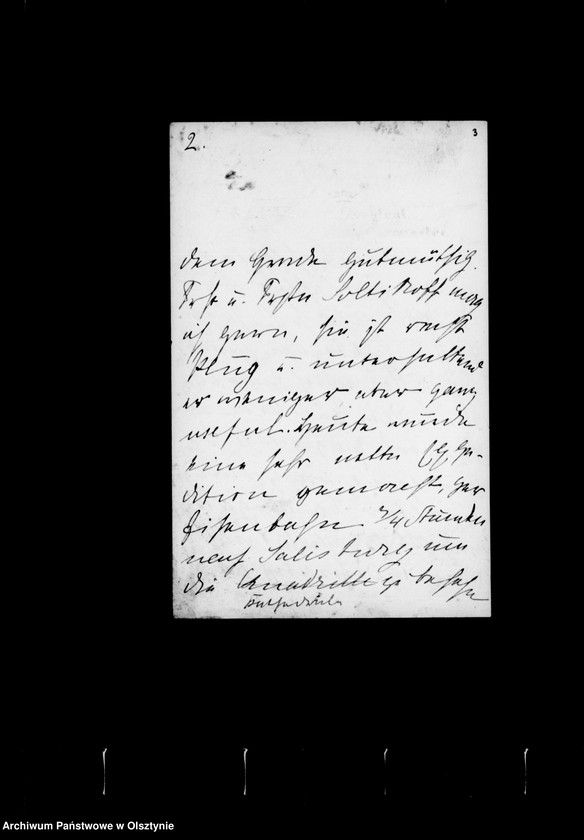 2.
3
dem Grade gutmüthig.
Frst u. Frstn Soltikoff mag
ich gern, sie ist recht
klug u. unterhaltend
er weniger aber ganz
useful. Heute wurde
eine sehr nette Expe-
dition gemacht, per
Eisenbahn 5/4 Stunden
nach Salisbury um
die Cathedrale zu besehn
Archiwum Państwowe w Olsztynie